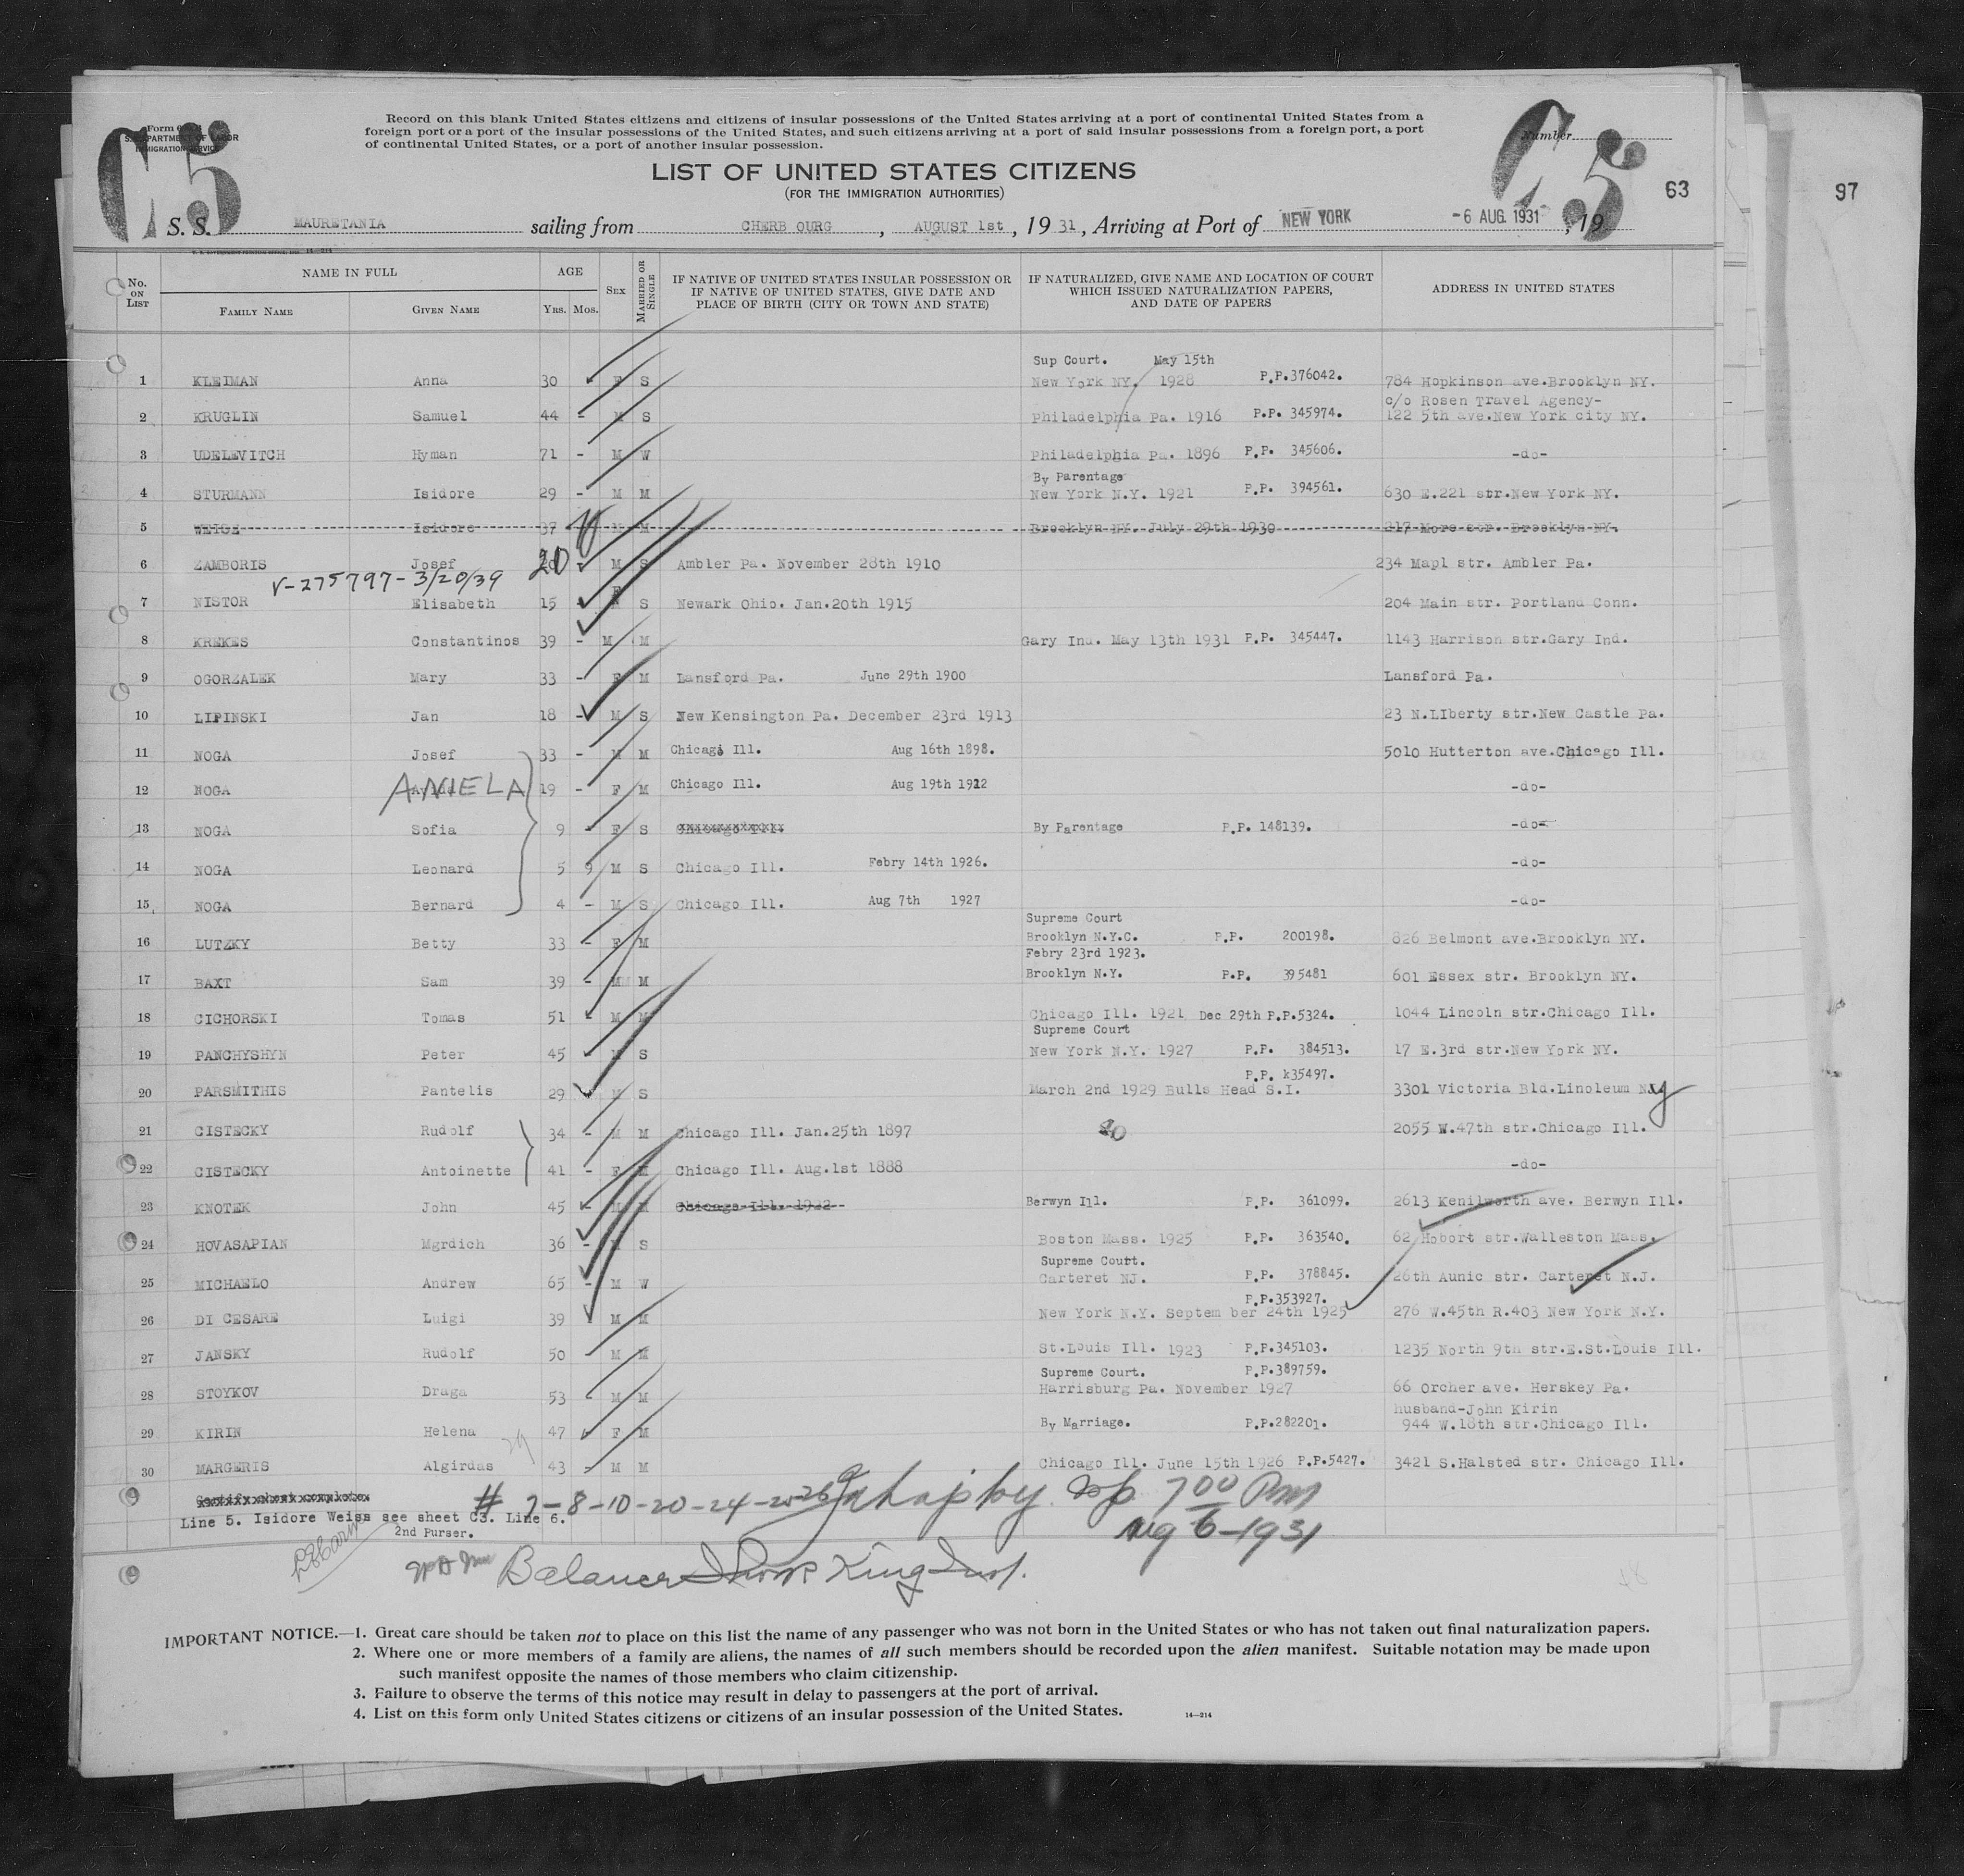 Record on this blank United States citizens and citizens of insular possessions of the United States arriving at a port of continental United States from a
foreign port or a port of the insular possessions of the United States, and such citizens arriving at a port of said insular possessions from a foreign port, a port
of continental United States, or a port of another insular possession.
C5 C5
Number
63
97
LIST OF UNITED STATES CITIZENS
(FOR THE IMMIGRATION AUTHORITIES)
S. S. MAURETANIA sailing from CHERB OURG, AUGUST 1st, 19 31, Arriving at Port of NEW YORK -6 AUG. 1931, 19
No. ON LIST NAME IN FULL AGE SEX MARRIED OR SINGLE IF NATIVE OF UNITED STATES INSULAR POSSESSION OR IF NATIVE OF UNITED STATES, GIVE DATE AND PLACE OF BIRTH (CITY OR TOWN AND STATE) IF NATURALIZED, GIVE NAME AND LOCATION OF COURT WHICH ISSUED NATURALIZATION PAPERS, AND DATE OF PAPERS ADDRESS IN UNITED STATES
FAMILY NAME GIVEN NAME YRS. MOS.
Sup Court. May 15th
1 KLEIMAN Anna 30 F S New York NY. 1928 P.P.376042. 784 Hopkinson ave.Brooklyn NY.
c/o Rosen Travel Agency-
2 KRUGLIN Samuel 44 - M S Philadelphia Pa. 1916 P.P. 345974. 122 5th ave.New York city NY.
3 UDELEVITCH Hyman 71 - M W Philadelphia Pa. 1896 P.P. 345606. -do-
By Parentage
4 STURMANN Isidore 29 - M M New York N.Y. 1921 P.P. 394561. 630 E.221 str.New York NY.
5 WEISZ Isidore 37 M M Brooklyn NY. July 29th 1930 217 More str. Brooklyn NY.
6 ZAMBORIS Josef 20 - M S Ambler Pa. November 28th 1910 234 Mapl str. Ambler Pa.
V-275797-3/20/39
7 NISTOR Elisabeth 15 F S Newark Ohio. Jan.20th 1915 204 Main str. Portland Conn.
8 KREKES Constantinos 39 - M M Gary Ind. May 13th 1931 P.P. 345447. 1143 Harrison str.Gary Ind.
9 OGORZALEK Mary 33 - F M Lansford Pa. June 29th 1900 Lansford Pa.
10 LIPINSKI Jan 18 - M S New Kensington Pa. December 23rd 1913 23 N.LIberty str.New Castle Pa.
11 NOGA Josef 33 - M M Chicago Ill. Aug 16th 1898. 5010 Hutterton ave.Chicago Ill.
12 NOGA ANIELA 19 - F M Chicago Ill. Aug 19th 1912 -do-
13 NOGA Sofia 9 - F S Chicago Ill. By Parentage P.P. 148139. -do-
14 NOGA Leonard 5 9 M S Chicago Ill. Febry 14th 1926. -do-
15 NOGA Bernard 4 - M S Chicago Ill. Aug 7th 1927 -do-
Supreme Court
16 LUTZKY Betty 33 - F M Brooklyn N.Y.C. P.P. 200198. 826 Belmont ave.Brooklyn NY.
Febry 23rd 1923.
17 BAXT Sam 39 - M M Brooklyn N.Y. P.P. 395481 601 Essex str. Brooklyn NY.
18 CICHORSKI Tomas 51 - M M Chicago Ill. 1921 Dec 29th P.P.5324. 1044 Lincoln str.Chicago Ill.
Supreme Court
19 PANCHYSHYN Peter 45 - M S New York N.Y. 1927 P.P. 384513. 17 E.3rd str.New York NY.
P.P. k35497.
20 PARSMITHIS Pantelis 29 M S March 2nd 1929 Bulls Head S.I. 3301 Victoria Bld.Linoleum NJy
21 CISTECKY Rudolf 34 - M M Chicago Ill. Jan.25th 1897 2055 W.47th str.Chicago Ill.
22 CISTECKY Antoinette 41 - F M Chicago Ill. Aug.1st 1888 -do-
23 KNOTEK John 45 - M M Chicago Ill. 1922 Berwyn Ill. P.P. 361099. 2613 Kenilworth ave. Berwyn Ill.
24 HOVASAPIAN Mgrdich 36 - M S Boston Mass. 1925 P.P. 363540. 62 Hobort str.Walleston Mass.
Supreme Court.
25 MICHAELO Andrew 65 - M W Carteret NJ. P.P. 378845. 26th Aunic str. Carteret N.J.
P.P.353927.
26 DI CESARE Luigi 39 M M New York N.Y. Septem ber 24th 1925 276 W.45th R.403 New York N.Y.
27 JANSKY Rudolf 50 - M M St.Louis Ill. 1923 P.P.345103. 1235 North 9th str.E.St.Louis Ill.
Supreme Court. P.P.389759.
28 STOYKOV Draga 53 - M M Harrisburg Pa. November 1927 66 Orcher ave. Herskey Pa.
husband-John Kirin
29 KIRIN Helena 47 F M By Marriage. P.P.282201. 944 W.18th str.Chicago Ill.
30 MARGERIS Algirdas 43 - M M Chicago Ill. June 15th 1926 P.P.5427. 3421 S.Halsted str. Chicago Ill.
# 7-8-10-20-24-25-26 700 Pm
Line 5. Isidore Weiss see sheet C3. Line 6.
2nd Purser.
Aug 6-1931
Balance King Insp.
IMPORTANT NOTICE.—1. Great care should be taken not to place on this list the name of any passenger who was not born in the United States or who has not taken out final naturalization papers.
2. Where one or more members of a family are aliens, the names of all such members should be recorded upon the alien manifest. Suitable notation may be made upon
such manifest opposite the names of those members who claim citizenship.
3. Failure to observe the terms of this notice may result in delay to passengers at the port of arrival.
4. List on this form only United States citizens or citizens of an insular possession of the United States.
14—214